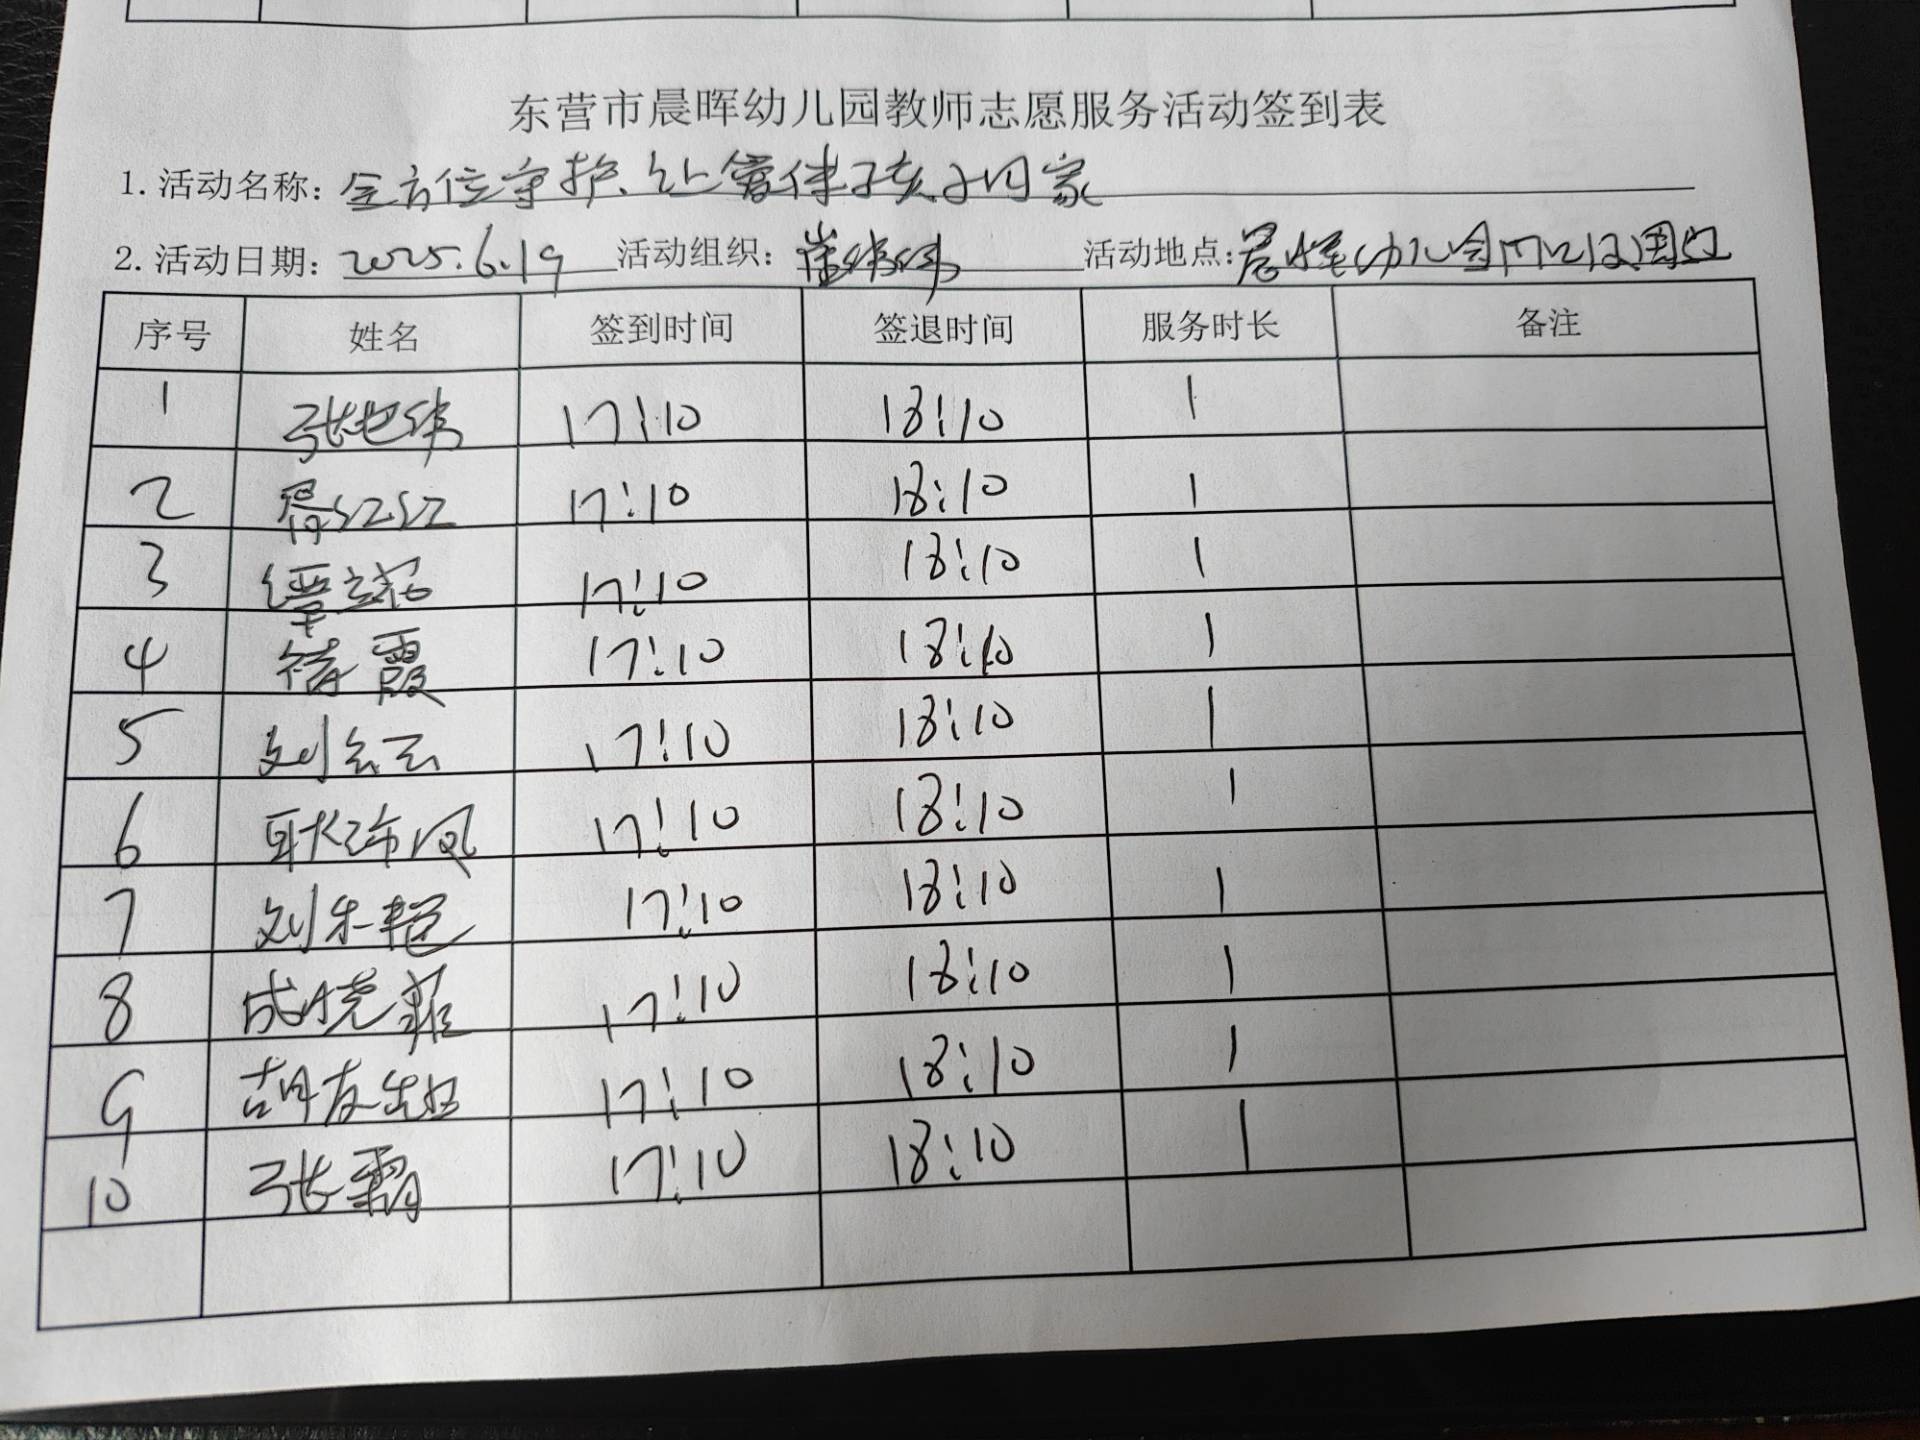 东营市晨晖幼儿园教师志愿服务活动签到表
1. 活动名称: 全方位守护、让爱伴孩子回家
2. 活动日期: 2025.6.19 活动组织: 崔纬纬 活动地点: 晨晖幼儿园门口及周边
序号 姓名 签到时间 签退时间 服务时长 备注
1 张艳伟 17:10 18:10 1
2 红红 17:10 18:10 1
3 17:10 18:10 1
4 霞 17:10 18:10 1
5 刘云云 17:10 18:10 1
6 耿沛凤 17:10 18:10 1
7 刘乐艳 17:10 18:10 1
8 成晓菲 17:10 18:10 1
9 胡友 17:10 18:10 1
10 张霞 17:10 18:10 1